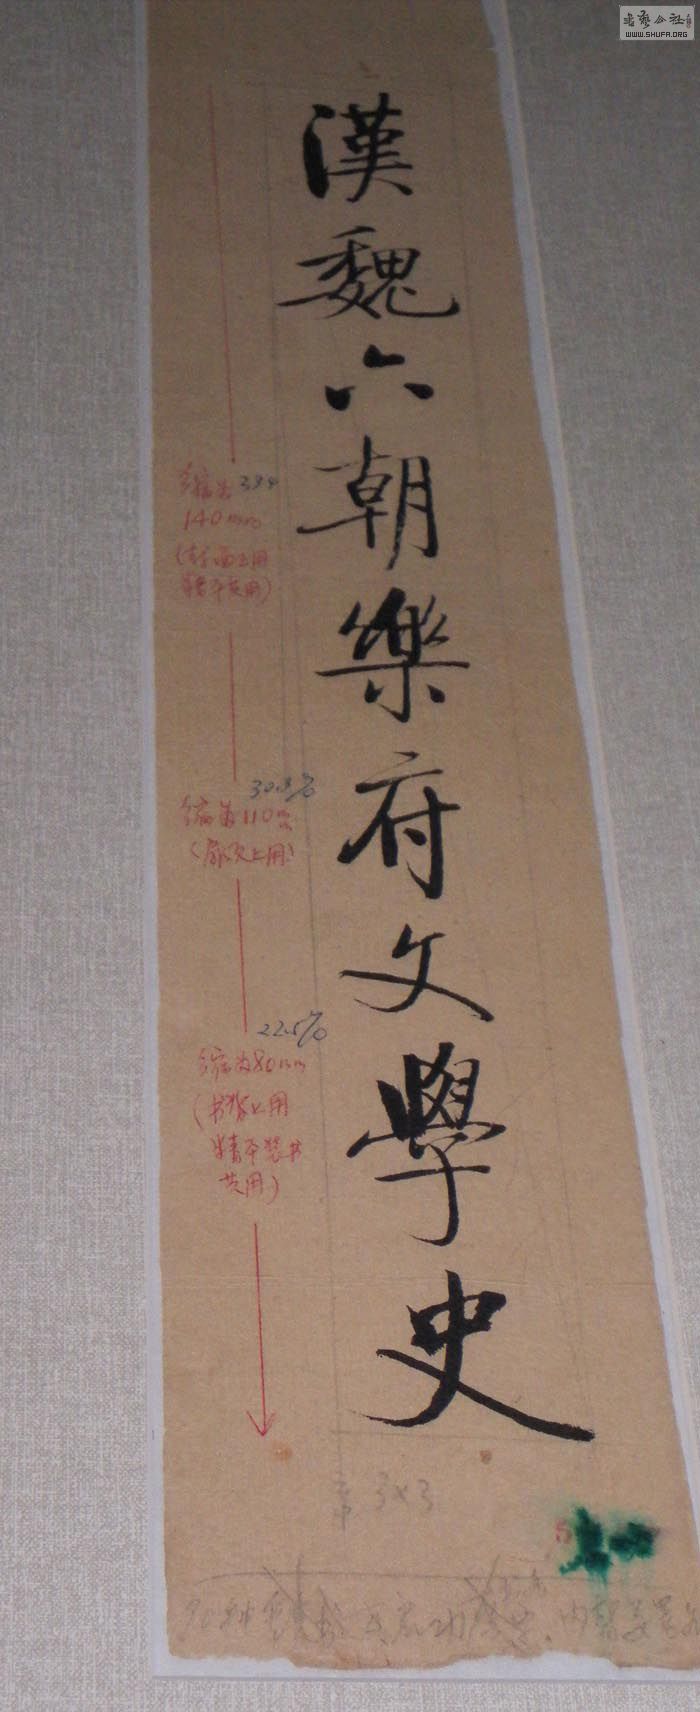 漢魏六朝樂府文學史
缩为 39%
140mm
(封面上用
精平共用)
30.8%
缩为110
(扉页上用)
22.5%
缩为80mm
(书脊上用
精平装书
共用)
3×3
書藝公社
WWW.SHUFA.ORG